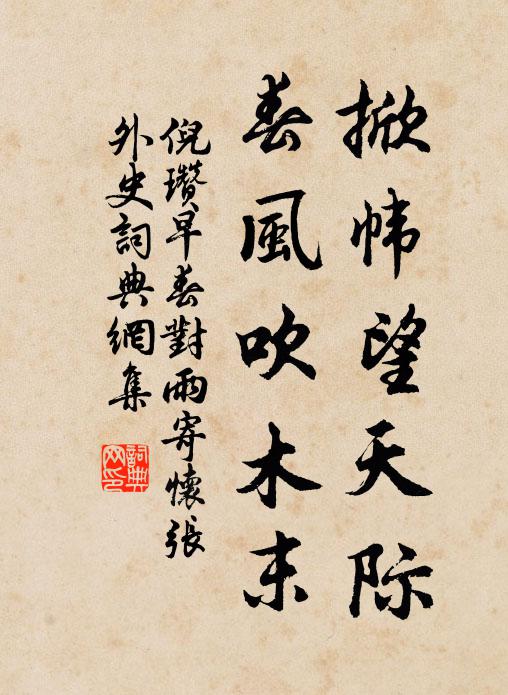 掀帏望天际
春風吹木末
倪瓚早春對雨寄懷張
外史詞典網集
詞典
网印